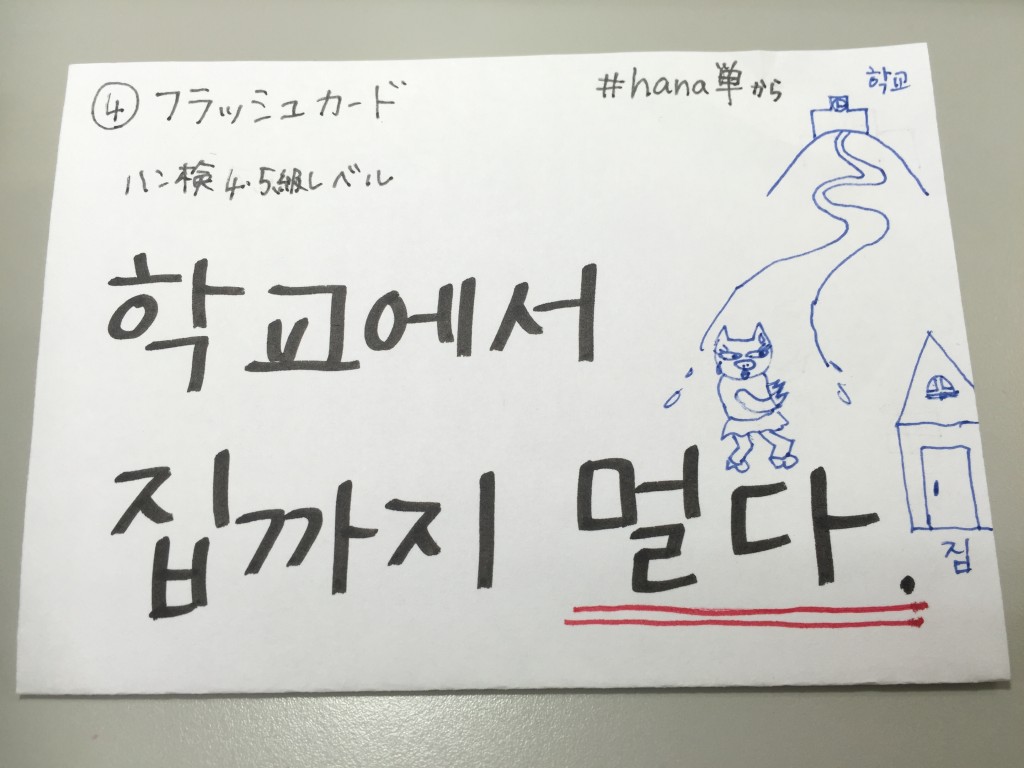 ④ フラッシュカード
#hana単から
ハン検4・5級レベル
학교
학교에서
집까지 멀다.
집